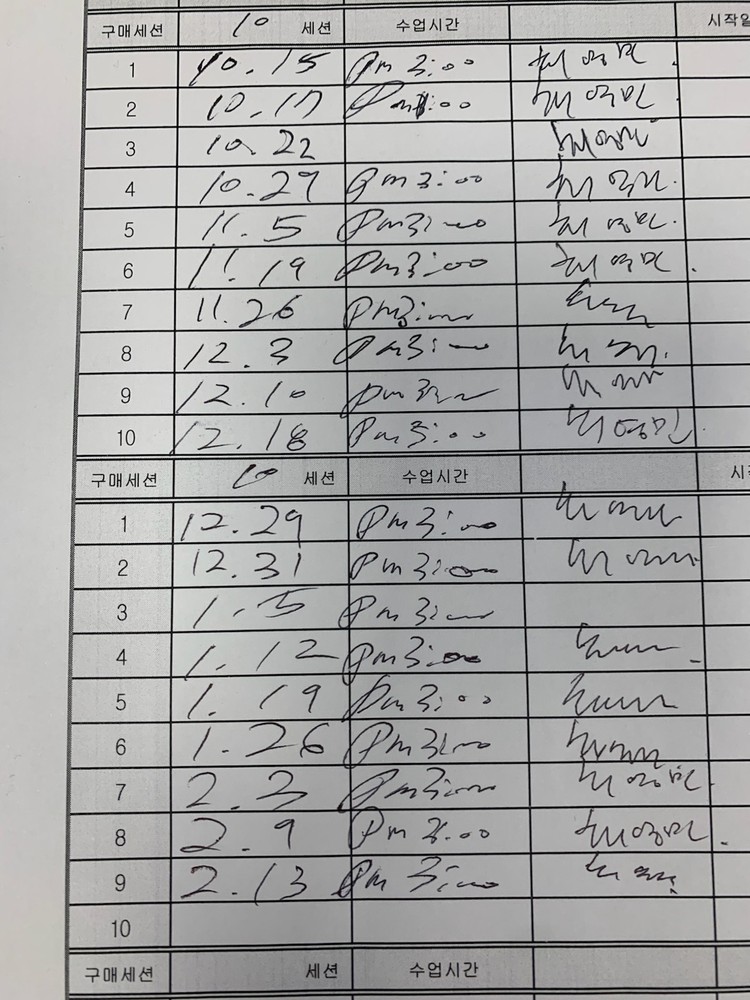 구매세션 10 세션 수업시간 시작일
1 10.15 Pm 3:00 최영민
2 10.17 Pm :00 최영민
3 10.22 최영민
4 10.29 Pm 3:00 최영민
5 11.5 Pm 3:00 최영민
6 11.19 Pm 3:00 최영민
7 11.26 Pm 3:00
8 12.3 Pm 3:00
9 12.10 Pm 3:00
10 12.18 Pm 3:00 최영민
구매세션 10 세션 수업시간
1 12.29 Pm 3:00
2 12.31 Pm 3:00
3 1.5 Pm 3:00
4 1.12 Pm 3:00
5 1.19 Pm 3:00
6 1.26 Pm 3:00
7 2.3 Pm 3:00 최영민
8 2.9 Pm 3:00 최영민
9 2.13 Pm 3:00
10
구매세션 세션 수업시간